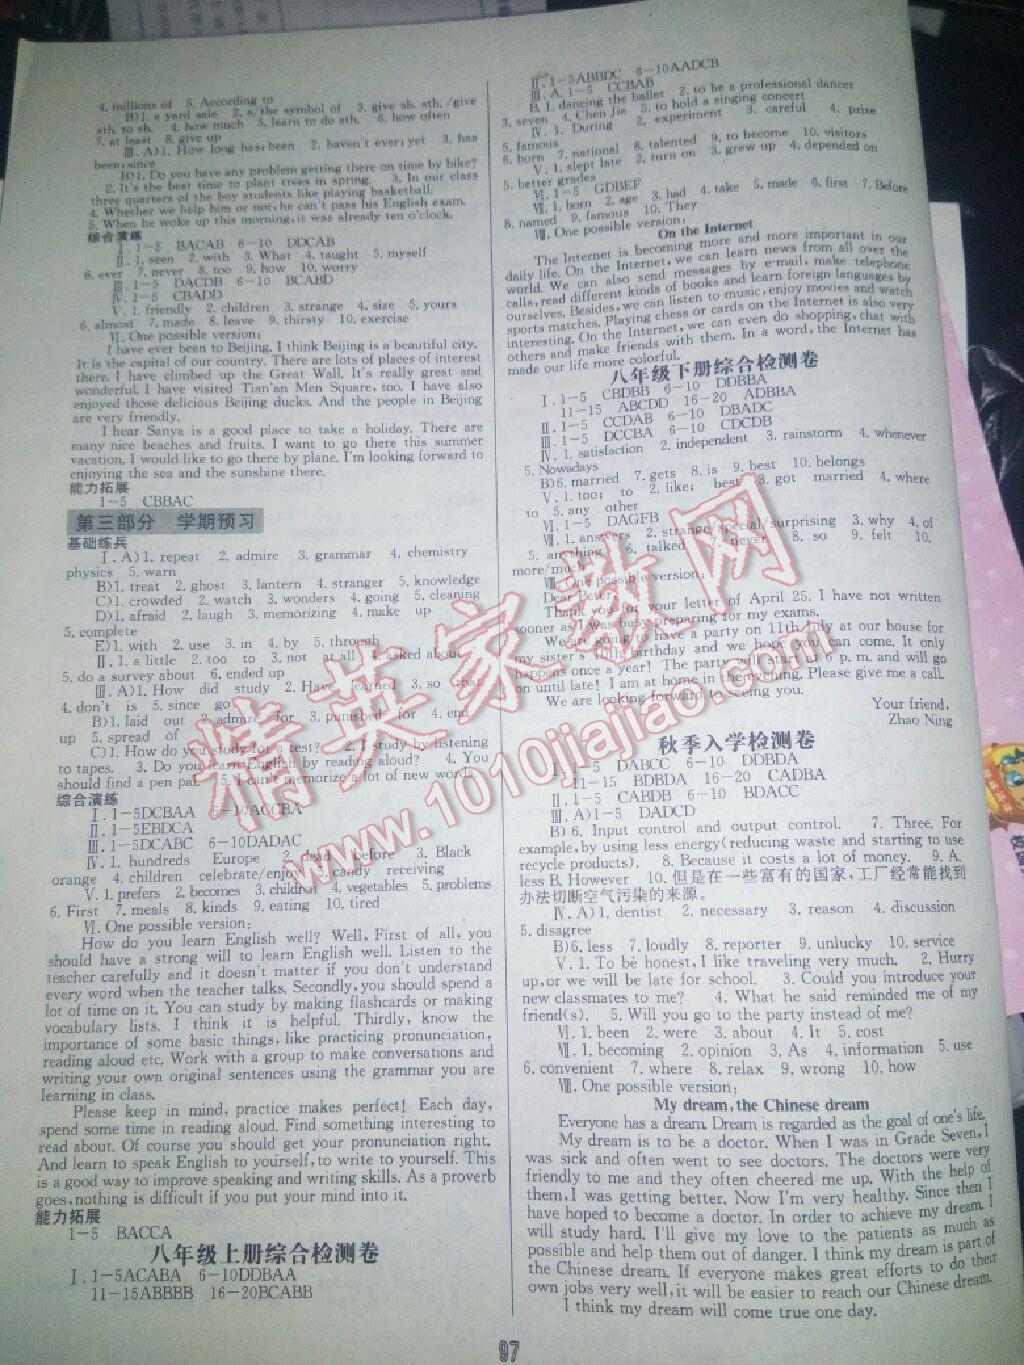 4. millions of 5. According to
B)1. a yard sale 2. a/the symbol of 3. give sb. sth. /give
sth. to sb. 4. how much 5. learn to do sth. 6. how often
7. at least 8. give up
Ⅲ. A)1. How long has; been 2. haven't ever; yet 3. has
been; since
B)1. Do you have any problem getting there on time by bike?
2. It's the best time to plant trees in spring. 3. In our class
three quarters of the boy students like playing basketball.
4. Whether we help him or not, he can't pass his English exam.
5. When he woke up this morning, it was already ten o'clock.
综合演练
Ⅰ. 1-5 BACAB 6-10 DDCAB
Ⅱ. 1. seen 2. with 3. What 4. taught 5. myself
6. ever 7. never 8. too 9. how 10. worry
Ⅲ. 1-5 DACDB 6-10 BCABD
Ⅳ. 1-5 CBADD
Ⅴ. 1. friendly 2. children 3. strange 4. size 5. yours
6. almost 7. made 8. leave 9. thirsty 10. exercise
Ⅵ. One possible version:
I have ever been to Beijing. I think Beijing is a beautiful city.
It is the capital of our country. There are lots of places of interest
there. I have climbed up the Great Wall. It's really great and
wonderful. I have visited Tian'an Men Square, too. I have also
enjoyed those delicious Beijing ducks. And the people in Beijing
are very friendly.
I hear Sanya is a good place to take a holiday. There are
many nice beaches and fruits. I want to go there this summer
vacation. I would like to go there by plane. I'm looking forward to
enjoying the sea and the sunshine there.
能力拓展
1-5 CBBAC
第三部分 学期预习
基础练兵
Ⅰ. A)1. repeat 2. admire 3. grammar 4. chemistry
physics 5. warn
B)1. treat 2. ghost 3. lantern 4. stranger 5. knowledge
C)1. crowded 2. watch 3. wonders 4. going 5. cleaning
D)1. afraid 2. laugh 3. memorizing 4. make up
5. complete
E)1. with 2. use 3. in 4. by 5. through
Ⅱ. 1. a little 2. too to 3. not at all 4. asked about
5. do a survey about 6. ended up
Ⅲ. A)1. How did study 2. Have learned 3. so that
4. don't is 5. since go
B)1. laid out 2. admire for 3. punished for 4. end
up 5. spread of
C)1. How do you study for a test? 2. I study by listening
to tapes. 3. Do you learn English by reading aloud? 4. You
should find a pen pal. 5. I can't memorize a lot of new words.
综合演练
Ⅰ. 1-5DCBAA 6-10ACCBA
Ⅱ. 1-5EBDCA
Ⅲ. 1-5DCABC 6-10DADAC
Ⅳ. 1. hundreds Europe 2. dead before 3. Black
orange 4. children celebrate/enjoy 5. candy receiving
Ⅴ. 1. prefers 2. becomes 3. children 4. vegetables 5. problems
6. First 7. meals 8. kinds 9. eating 10. tired
Ⅵ. One possible version:
How do you learn English well? Well, First of all, you
should have a strong will to learn English well. Listen to the
teacher carefully and it doesn't matter if you don't understand
every word when the teacher talks. Secondly, you should spend a
lot of time on it. You can study by making flashcards or making
vocabulary lists. I think it is helpful. Thirdly, know the
importance of some basic things, like practicing pronunciation,
reading aloud etc. Work with a group to make conversations and
writing your own original sentences using the grammar you are
learning in class.
Please keep in mind, practice makes perfect! Each day,
spend some time in reading aloud. Find something interesting to
read about. Of course you should get your pronunciation right.
And learn to speak English to yourself, to write to yourself. This
is a good way to improve speaking and writing skills. As a proverb
goes, nothing is difficult if you put your mind into it.
能力拓展
1-5 BACCA
八年级上册综合检测卷
Ⅰ. 1-5ACABA 6-10DDBAA
11-15ABBBB 16-20BCABB
Ⅱ. 1-5ABBDC 6-10AADCB
Ⅲ. A. 1-5 CCBAB
B. 1. dancing the ballet 2. to be a professional dancer
3. seven 4. Chen Jie 5. to hold a singing concert
Ⅳ. 1. During 2. experiment 3. careful 4. prize
5. famous
6. born 7. national 8. talented 9. to become 10. visitors
Ⅴ. 1. slept late 2. turn on 3. grew up 4. depended on
5. better grades
Ⅵ. 1-5 GDBEF
Ⅶ. 1. born 2. age 3. had 4. take 5. made 6. first 7. Before
8. named 9. famous 10. They
Ⅷ. One possible version:
On the Internet
The Internet is becoming more and more important in our
daily life. On the Internet, we can learn news from all over the
world. We can also send messages by e-mail, make telephone
calls, read different kinds of books and learn foreign languages by
ourselves. Besides, we can listen to music, enjoy movies and watch
sports matches. Playing chess or cards on the Internet is also very
interesting. On the Internet, we can even do shopping, chat with
others and make friends with them. In a word, the Internet has
made our life more colorful.
八年级下册综合检测卷
Ⅰ. 1-5 CBDBB 6-10 DDBBA
11-15 ABCDD 16-20 ADBBA
Ⅱ. 1-5 CCDAB 6-10 DBADC
Ⅲ. 1-5 DCCBA 6-10 CDCDB
Ⅳ. 1. satisfaction 2. independent 3. rainstorm 4. whenever
5. Nowadays
B)6. married 7. gets 8. is 9. best 10. belongs
Ⅴ. 1. too; to 2. like; best 3. got married 4. where
to 5. any other
Ⅵ. 1-5 DAGFB
Ⅶ. 1. answers 2. strange/special/surprising 3. why 4. of
5. anything 6. talked 7. never 8. so 9. felt 10.
more/much
Ⅷ. One possible version:
Dear Peter,
Thank you for your letter of April 25. I have not written
sooner as I was busy preparing for my exams.
We are going to have a party on 11th July at our house for
my sister's 10th birthday and we hope you can come. It only
happens once a year! The party will start at 6 p. m. and will go
on until late! I am at home in the evening. Please give me a call.
We are looking forward to seeing you.
Your friend,
Zhao Ning
秋季入学检测卷
Ⅰ. 1-5 DABCC 6-10 DDBDA
11-15 BDBDA 16-20 CADBA
Ⅱ. 1-5 CABDB 6-10 BDACC
Ⅲ. A)1-5 DADCD
B) 6. Input control and output control. 7. Three. For
example, by using less energy (reducing waste and starting to use
recycle products). 8. Because it costs a lot of money. 9. A.
less B. However 10. 但是在一些富有的国家,工厂经常能找到
办法切断空气污染的来源。
Ⅳ. A) 1. dentist 2. necessary 3. reason 4. discussion
5. disagree
B)6. less 7. loudly 8. reporter 9. unlucky 10. service
Ⅴ. 1. To be honest, I like traveling very much. 2. Hurry
up, or we will be late for school. 3. Could you introduce your
new classmates to me? 4. What he said reminded me of my
friend(s). 5. Will you go to the party instead of me?
Ⅵ. 1. been 2. were 3. about 4. It 5. cost
Ⅶ. 1. becoming 2. opinion 3. As 4. information 5. use
6. convenient 7. where 8. relax 9. wrong 10. how
Ⅷ. One possible version:
My dream, the Chinese dream
Everyone has a dream. Dream is regarded as the goal of one's life.
My dream is to be a doctor. When I was in Grade Seven, I
was sick and often went to see doctors. The doctors were very
friendly to me and they often cheered me up. With the help of
them, I was getting better. Now I'm very healthy. Since then I
have hoped to become a doctor. In order to achieve my dream, I
will study hard. I'll give my love to the patients as much as
possible and help them out of danger. I think my dream is part of
the Chinese dream. If everyone makes great efforts to do their
own jobs very well, it will be easier to reach our Chinese dream.
I think my dream will come true one day.
97
精英家教网
www.1010jiajiao.com